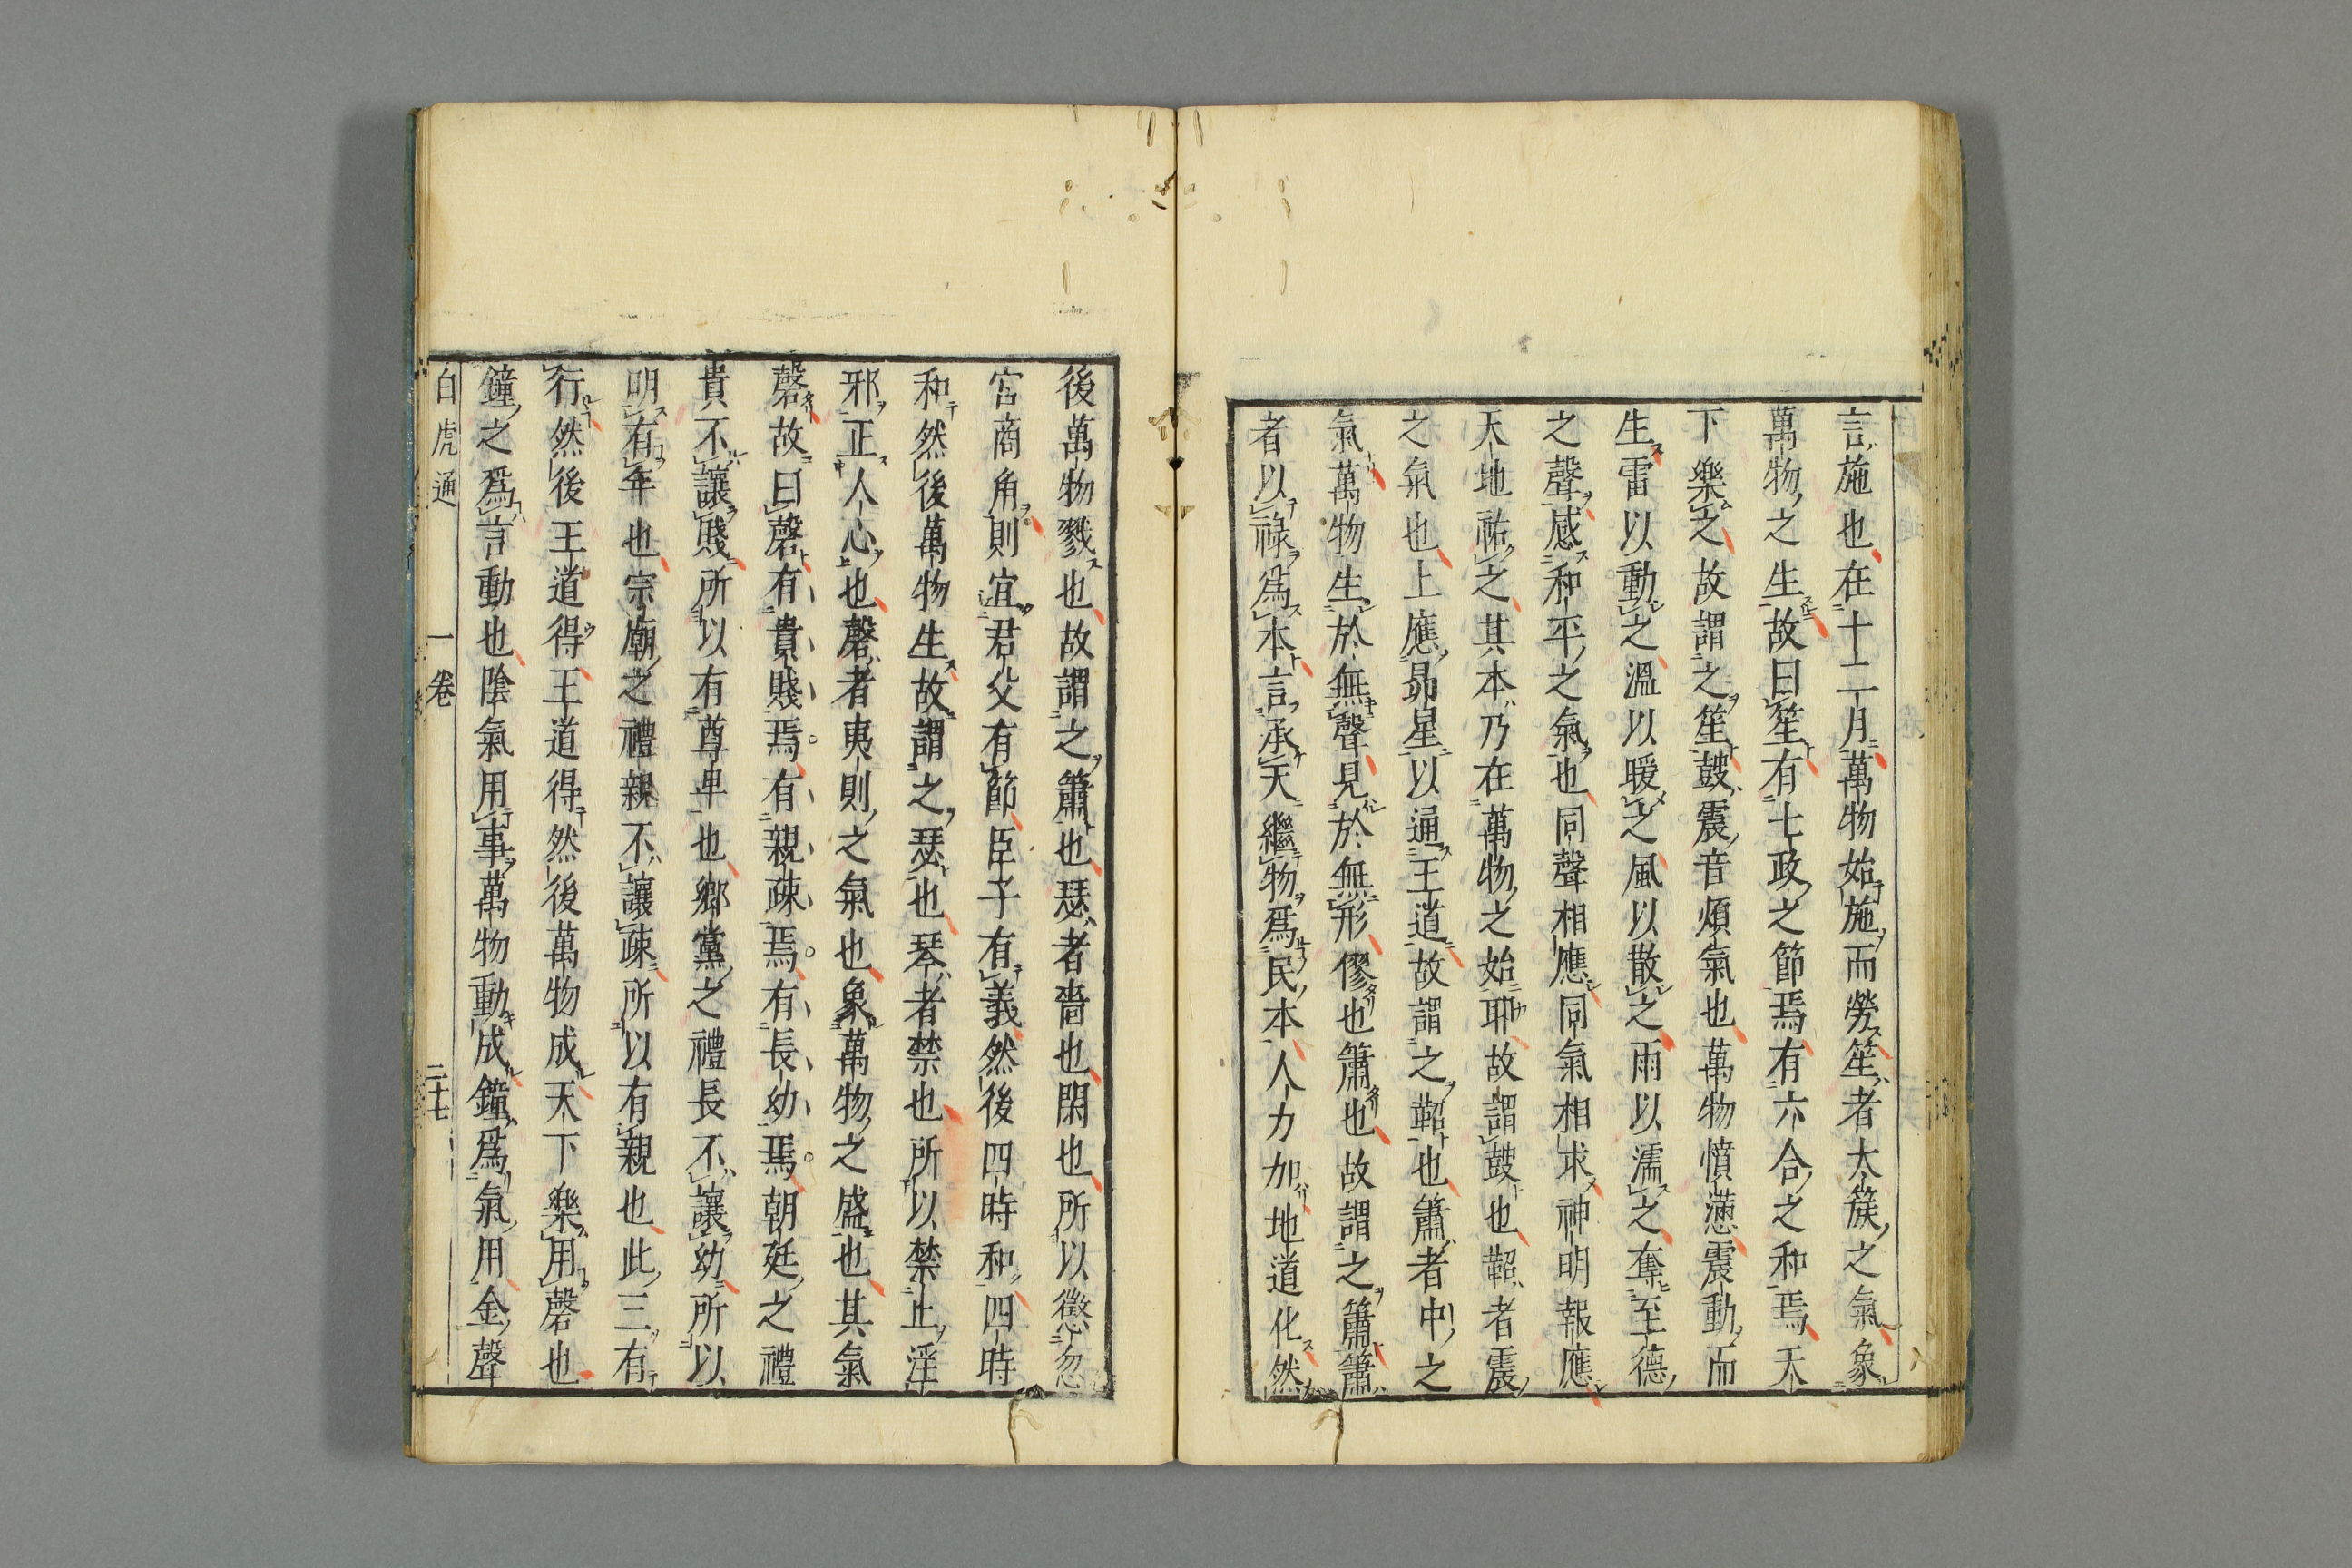 言施也在十二月萬物始施而勞笙者太簇之氣象
萬物之生故曰笙有七政之節焉有六合之和焉天
下樂之故謂之笙鼓震音煩氣也萬物憤懣震動而
生雷以動之溫以暖之風以散之雨以濡之奮至德
之聲感和平之氣也同聲相應同氣相求神明報應
天地祐之其本乃在萬物之始耶故謂鼓也鞀者震
之氣也上應昴星以通王道故謂之鞀也簫者中之
氣萬物生於無聲見於無形僇也簫也故謂之簫簫
者以祿爲本言承天繼物爲民本人力加地道化然
後萬物戮也故謂之簫也瑟者嗇也閑也所以懲忽
宮商角則宜君父有節臣子有義然後四時和四時
和然後萬物生故謂之瑟也琴者禁也所以禁止淫
邪正人心也磬者夷則之氣也象萬物之盛也其氣
磬故曰磬有貴賤焉有親疎焉有長幼焉朝廷之禮
貴不讓賤所以有尊卑也鄉黨之禮長不讓幼所以
明有年也宗廟之禮親不讓疎所以有親也此三有
行然後王道得王道得然後萬物成天下樂用磬也
鐘之爲言動也陰氣用事萬物動成鐘爲氣用金聲
白虎通 一卷 二十七